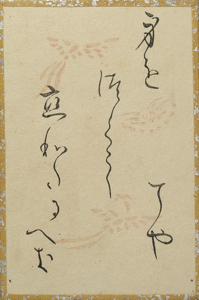 身を
つくし
てや
恋わたるへき